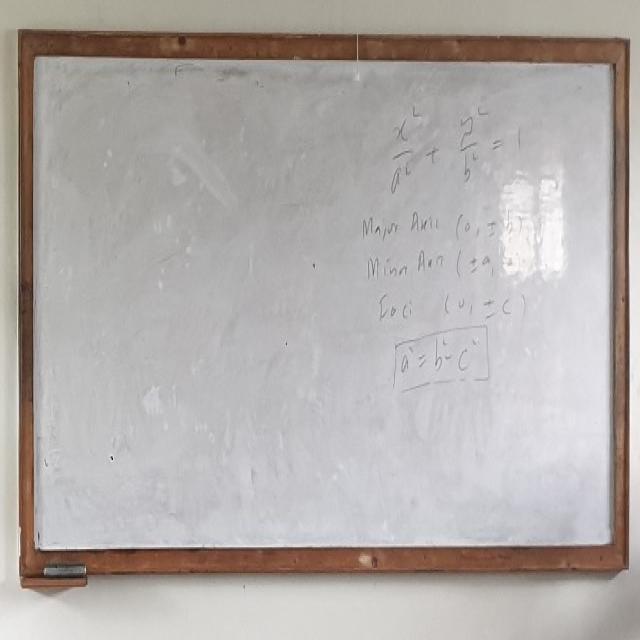 x²/a² + y²/b² = 1
Major Axis (0, ± b)
Minor Axis (± a,
Foci (0, ± c)
a² = b² - c²